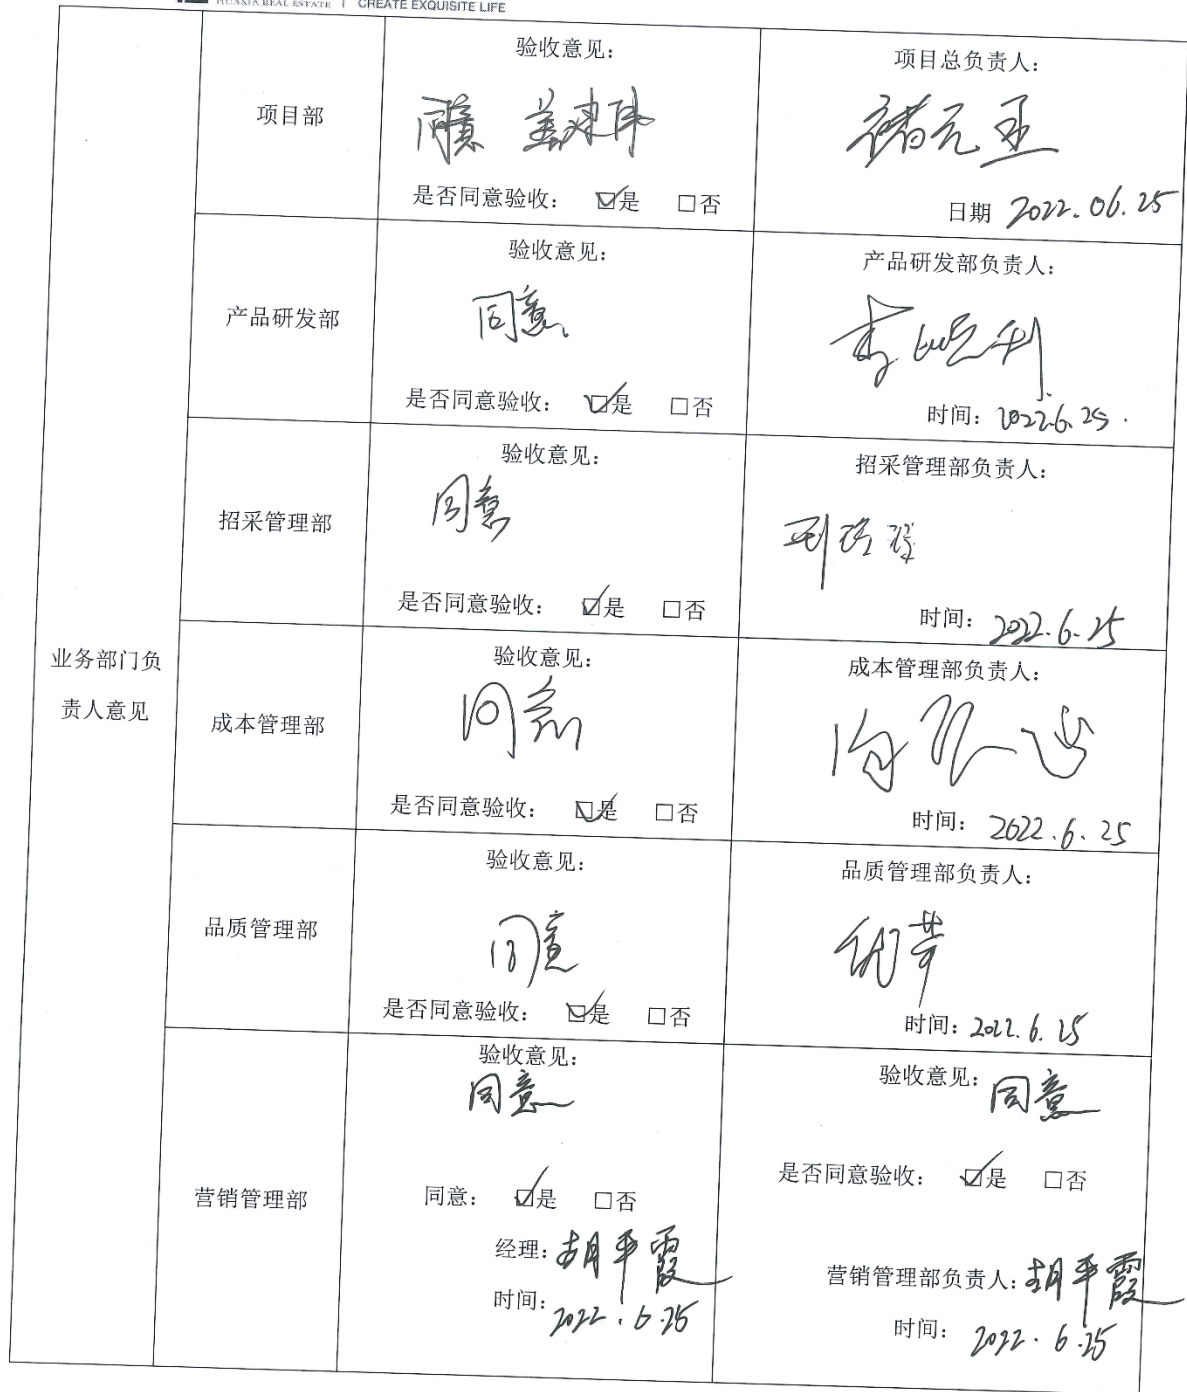 HUAXIA REAL ESTATE | CREATE EXQUISITE LIFE
业务部门负
责人意见
项目部
验收意见：
同意
是否同意验收： ☑是 □否
项目总负责人：
日期 2022.06.25
产品研发部
验收意见：
同意。
是否同意验收： ☑是 □否
产品研发部负责人：
时间：2022.6.25.
招采管理部
验收意见：
同意
是否同意验收： ☑是 □否
招采管理部负责人：
时间：2022.6.25
成本管理部
验收意见：
同意
是否同意验收： ☑是 □否
成本管理部负责人：
时间：2022.6.25
品质管理部
验收意见：
同意
是否同意验收： ☑是 □否
品质管理部负责人：
时间：2022.6.25
营销管理部
验收意见：
同意
同意： ☑是 □否
经理：胡平霞
时间：2022.6.25
验收意见：同意
是否同意验收： ☑是 □否
营销管理部负责人：胡平霞
时间：2022.6.25